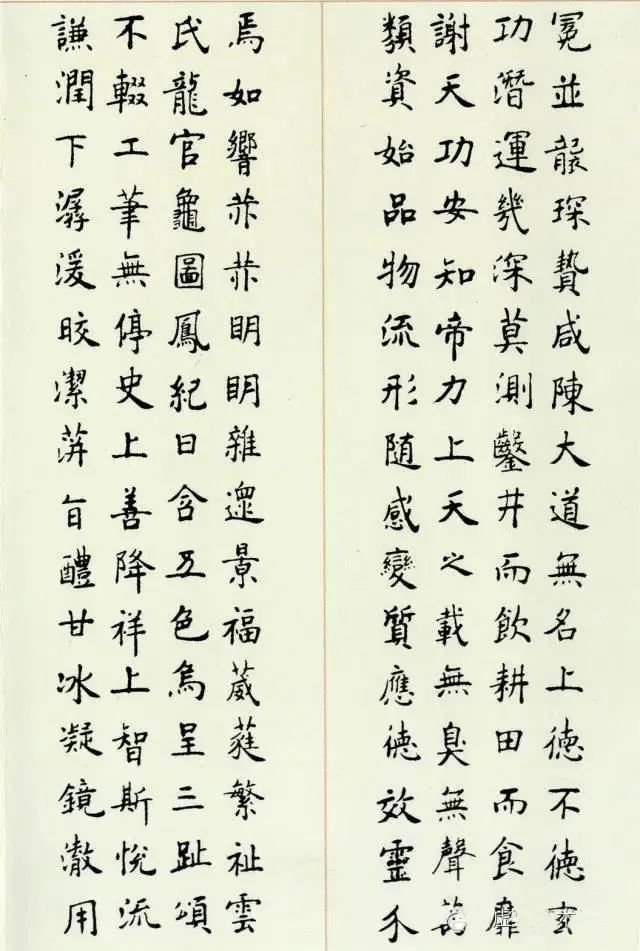 冕並襲琛贄咸陳大道無名上德不德玄
功潛運幾深莫測鑿井而飲耕田而食靡
謝天功安知帝力上天之載無臭無聲萬
類資始品物流形随感變質應德效靈介
焉如響赫赫明明雜遝景福葳蕤繁祉雲
氏龍官龜圖鳳紀日含五色烏呈三趾頌
不輟工筆無停史上善降祥上智斯悅流
謙潤下潺湲晈潔蓱旨醴甘冰凝鏡澈用